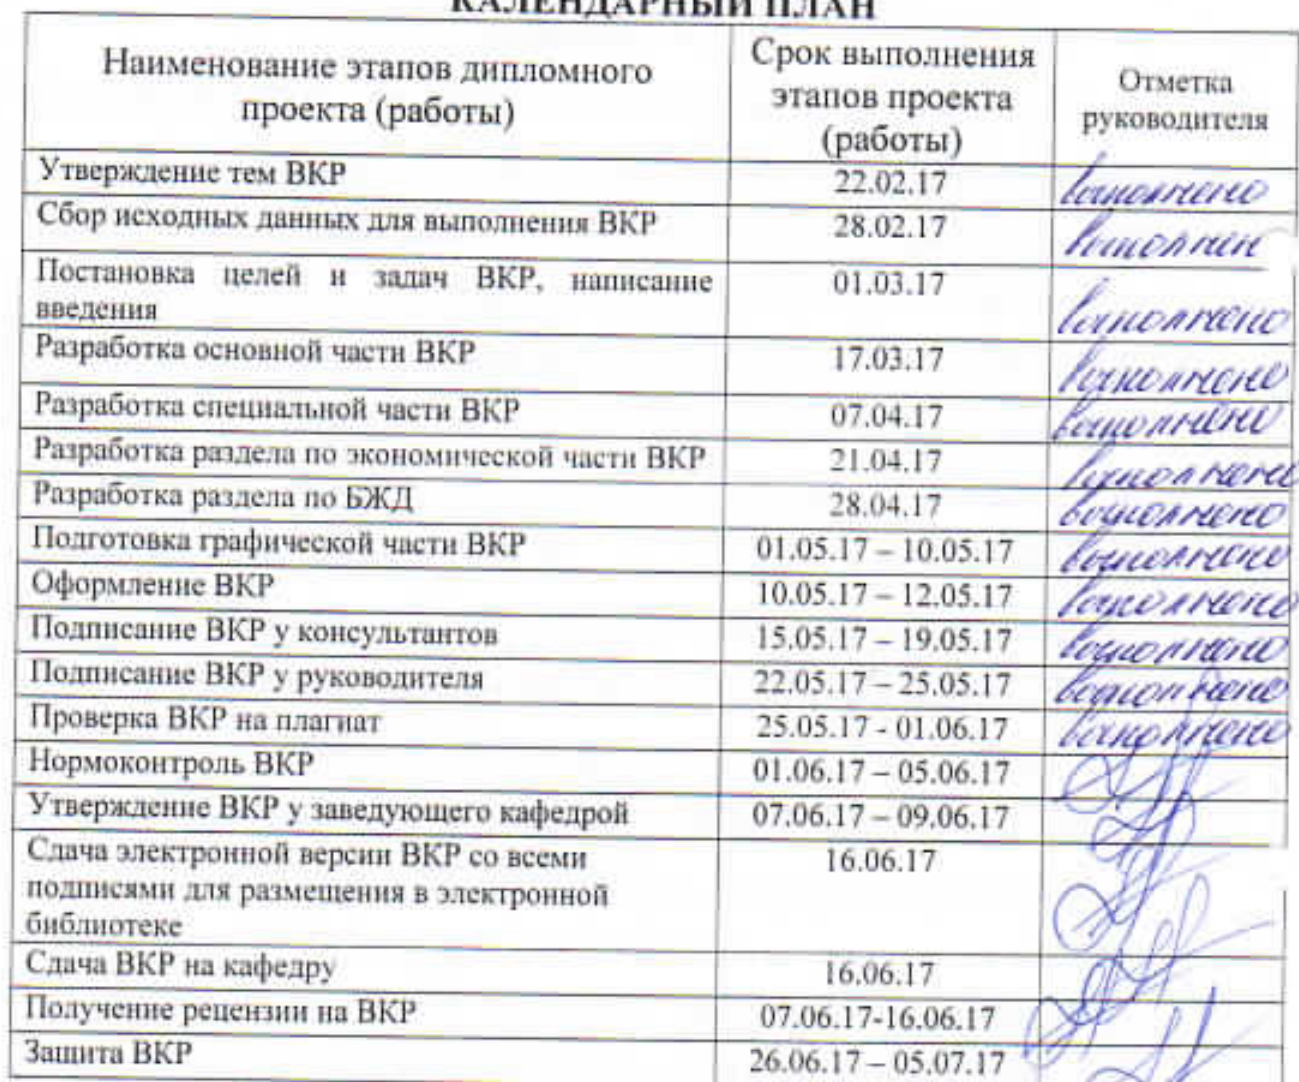 КАЛЕНДАРНЫЙ ПЛАН
Наименование этапов дипломного
проекта (работы)
Срок выполнения
этапов проекта
(работы)
Отметка
руководителя
Утверждение тем ВКР 22.02.17 выполнено
Сбор исходных данных для выполнения ВКР 28.02.17 выполнен
Постановка целей и задач ВКР, написание
введения 01.03.17 выполнено
Разработка основной части ВКР 17.03.17 выполнено
Разработка специальной части ВКР 07.04.17 выполнено
Разработка раздела по экономической части ВКР 21.04.17 выполнено
Разработка раздела по БЖД 28.04.17 выполнено
Подготовка графической части ВКР 01.05.17 – 10.05.17 выполнено
Оформление ВКР 10.05.17 – 12.05.17 выполнено
Подписание ВКР у консультантов 15.05.17 – 19.05.17 выполнено
Подписание ВКР у руководителя 22.05.17 – 25.05.17 выполнено
Проверка ВКР на плагиат 25.05.17 - 01.06.17 выполнено
Нормоконтроль ВКР 01.06.17 – 05.06.17
Утверждение ВКР у заведующего кафедрой 07.06.17 – 09.06.17
Сдача электронной версии ВКР со всеми 16.06.17
подписями для размещения в электронной
библиотеке
Сдача ВКР на кафедру 16.06.17
Получение рецензии на ВКР 07.06.17-16.06.17
Защита ВКР 26.06.17 – 05.07.17